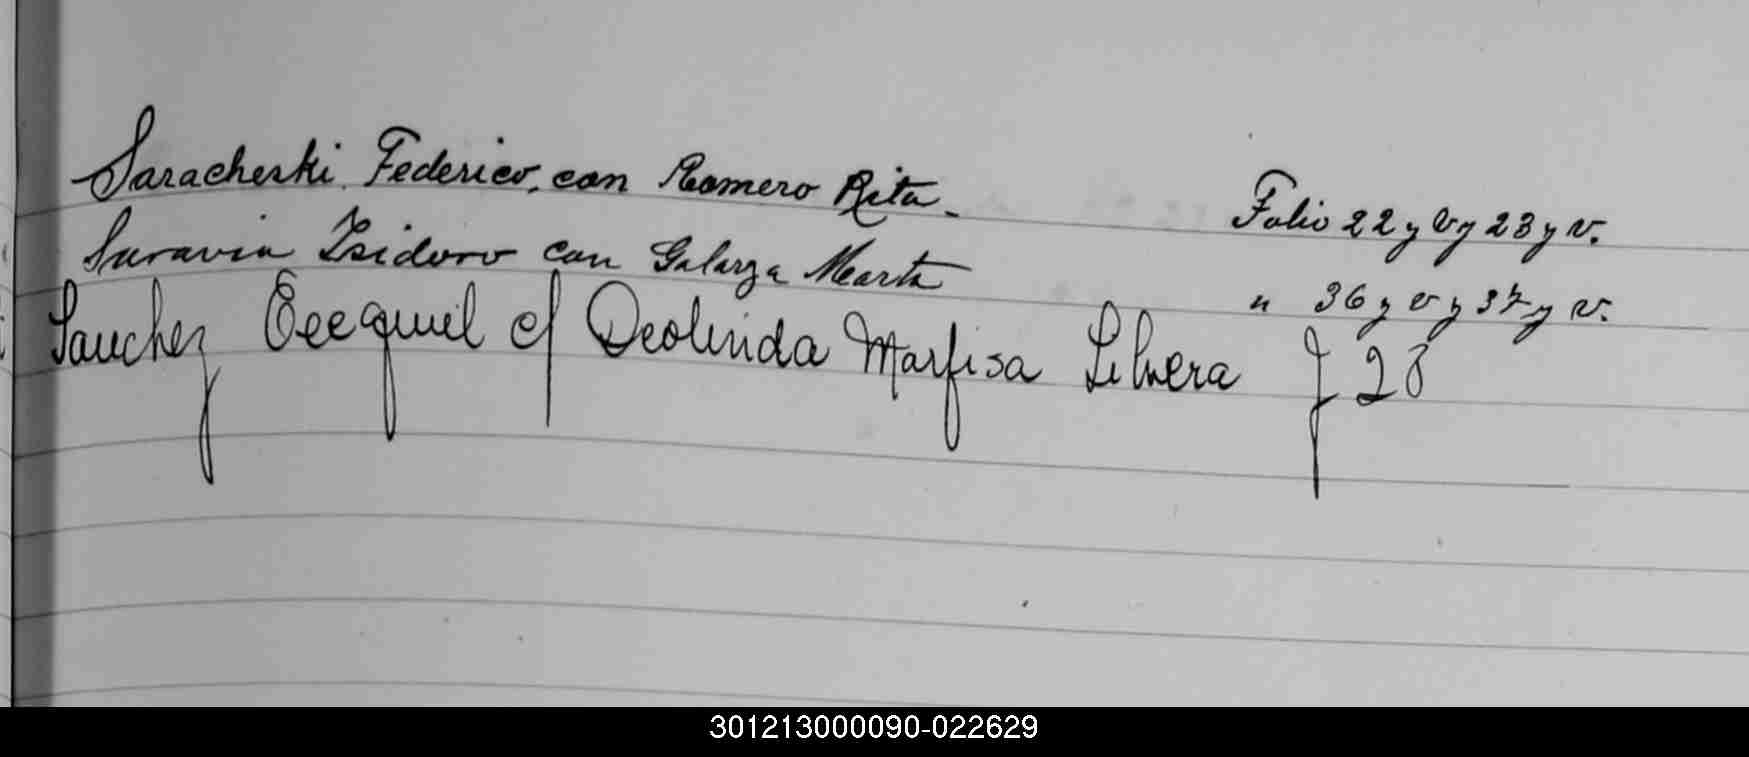 Saracheski Federico, con Romero Rita.    Folio 22 y v y 23 y v.
Saravia Isidoro con Galarza Marta    " 36 y v y 37 y v.
Sanchez Ecequiel c/ Deolinda Marfisa    f 28
301213000090-022629